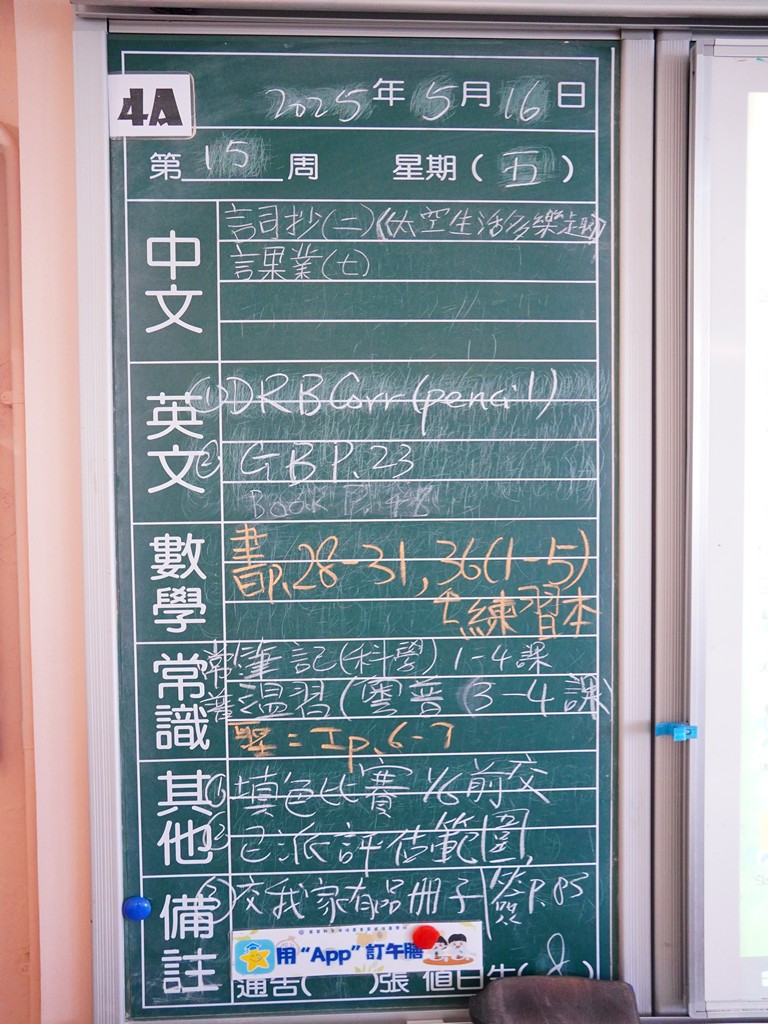 4A
2025年5月16日
第15周 星期(五)
中文
詞抄(二)《太空生活多樂趣》
課業(七)
英文
① DRB Corr (pencil)
② GB P.23
Book P.
數學
書p.28-31, 36(1-5)
↑練習本
常識
常:筆記(科學) 1-4課
普:溫習(粵普 3-4課
聖=工p.6-7
其他
① 填色比賽 1/6前交
② 已派評估範圍
備註
③ 交我家有品冊子 簽P.85
用“App”訂午膳
通告( )張 值日生(8)